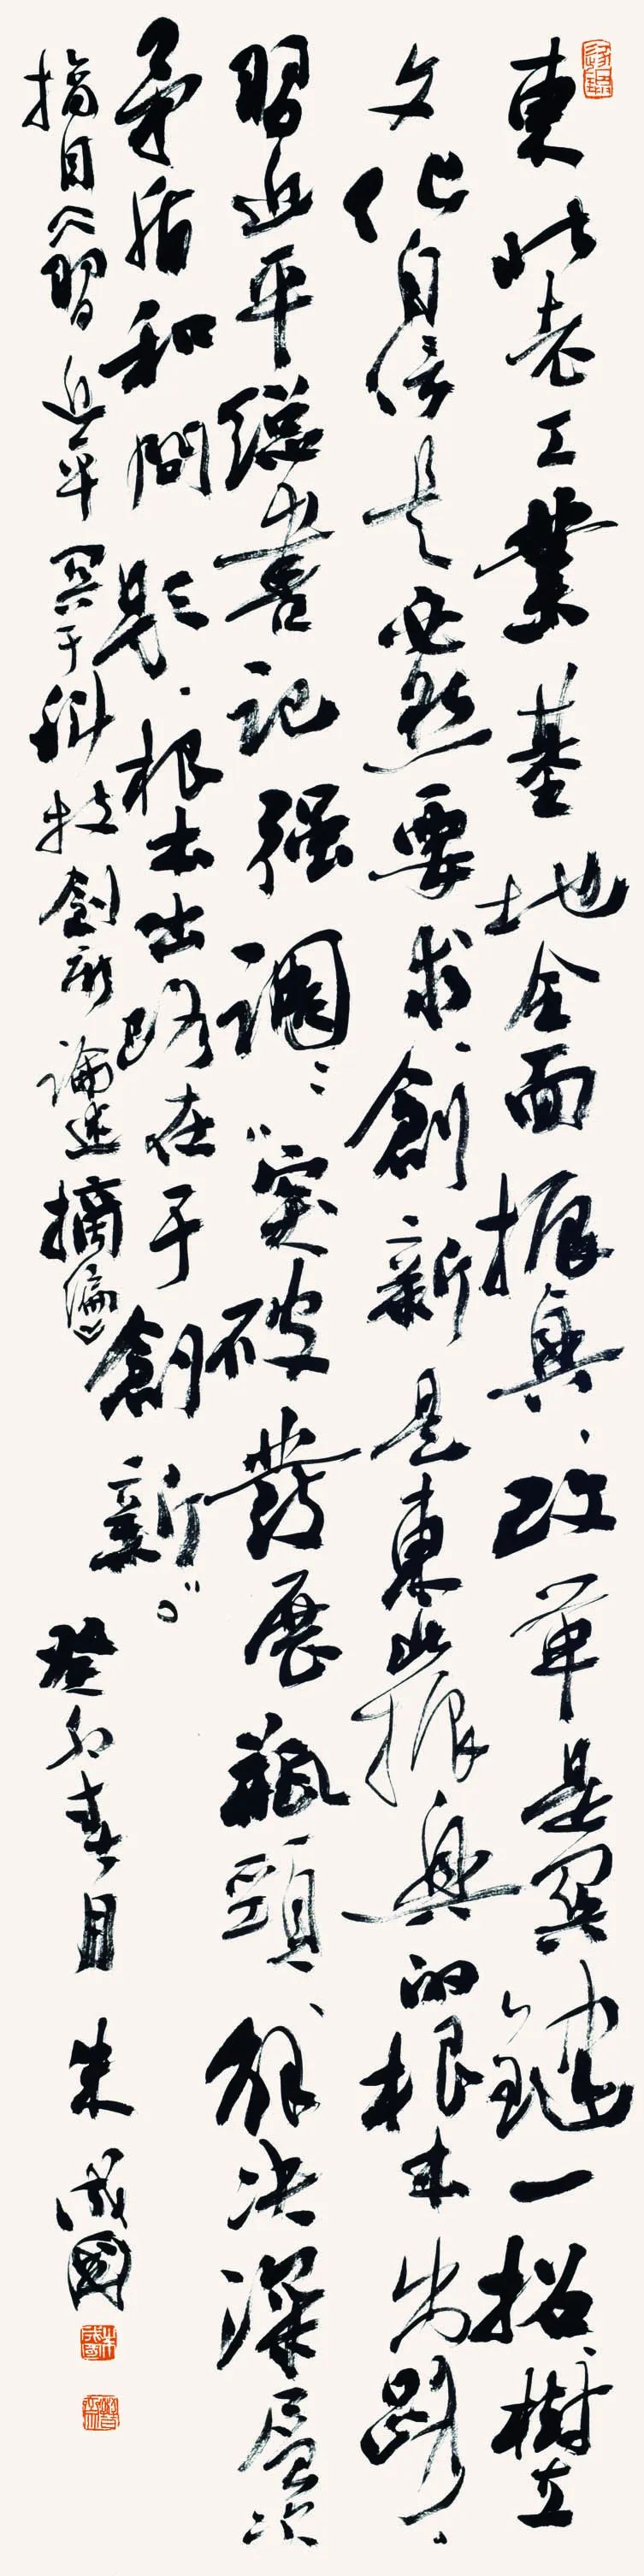 東北老工業基地全面振興、改革是関鍵一招、樹立
文化自信是必然要求、創新是東北振興的根本出路、
習近平總書記强調："突破發展瓶頸、解决深層次
矛盾和問題、根本出路在于創新。"
摘自《習近平関于科技創新論述摘編》
癸卯春月 朱成國
朱成國